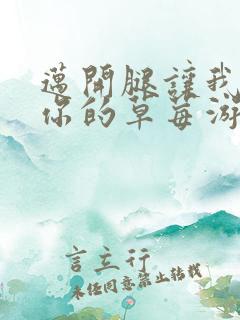 邁開腿讓我
你的草莓游
言立行
未经同意禁止转载